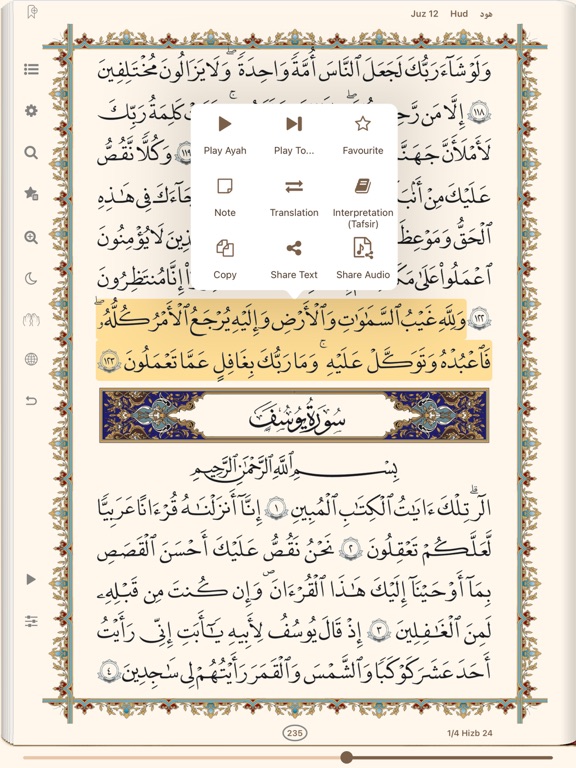 Juz 12 Hud هود
وَلَوْ شَآءَ رَبُّكَ لَجَعَلَ ٱلنَّاسَ أُمَّةً وَٰحِدَةً ۖ وَلَا يَزَالُونَ مُخْتَلِفِينَ
١١٨ إِلَّا مَن رَّحِمَ كَلِمَةُ رَبِّكَ
لَأَمْلَأَنَّ جَهَنَّمَ ١١٩ وَكُلًّا نَّقُصُّ
عَلَيْكَ مِنْ أَنۢبَآءِ جَآءَكَ فِى هَـٰذِهِ
ٱلْحَقُّ وَمَوْعِظَةٌ لِّلَّذِينَ لَا يُؤْمِنُونَ
ٱعْمَلُوا۟ عَلَىٰ إِنَّا مُنتَظِرُونَ
١٢٢ وَلِلَّهِ غَيْبُ ٱلسَّمَـٰوَٰتِ وَٱلْأَرْضِ وَإِلَيْهِ يُرْجَعُ ٱلْأَمْرُ كُلُّهُۥ
فَٱعْبُدْهُ وَتَوَكَّلْ عَلَيْهِ ۚ وَمَا رَبُّكَ بِغَـٰفِلٍ عَمَّا تَعْمَلُونَ ١٢٣
Play Ayah Play To... Favourite
Note Translation Interpretation
(Tafsir)
Copy Share Text Share Audio
سُورَةُ يُوسُفَ
بِسْمِ ٱللَّهِ ٱلرَّحْمَـٰنِ ٱلرَّحِيمِ
الٓر ۚ تِلْكَ ءَايَـٰتُ ٱلْكِتَـٰبِ ٱلْمُبِينِ ١ إِنَّآ أَنزَلْنَـٰهُ قُرْءَٰنًا عَرَبِيًّا
لَّعَلَّكُمْ تَعْقِلُونَ ٢ نَحْنُ نَقُصُّ عَلَيْكَ أَحْسَنَ ٱلْقَصَصِ
بِمَآ أَوْحَيْنَآ إِلَيْكَ هَـٰذَا ٱلْقُرْءَانَ وَإِن كُنتَ مِن قَبْلِهِۦ
لَمِنَ ٱلْغَـٰفِلِينَ ٣ إِذْ قَالَ يُوسُفُ لِأَبِيهِ يَـٰٓأَبَتِ إِنِّى رَأَيْتُ
أَحَدَ عَشَرَ كَوْكَبًا وَٱلشَّمْسَ وَٱلْقَمَرَ رَأَيْتُهُمْ لِى سَـٰجِدِينَ ٤
235 1/4 Hizb 24